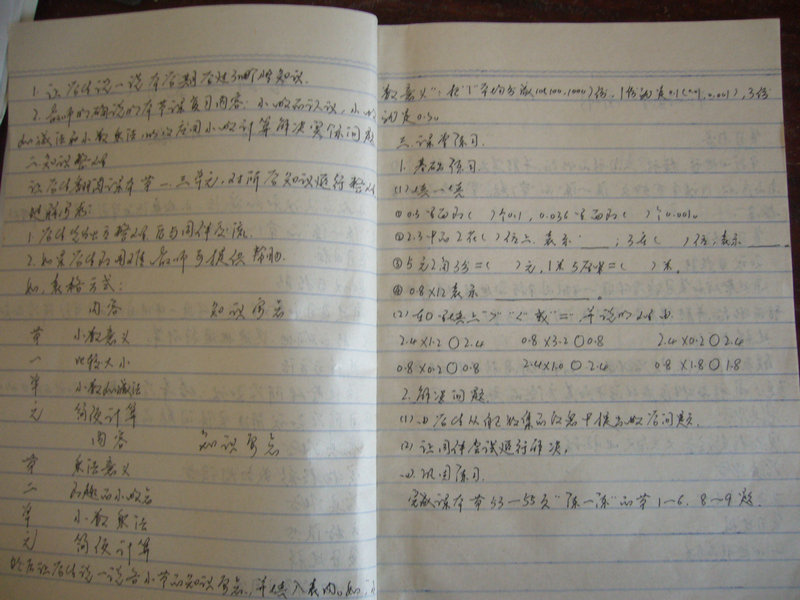 1. 让学生说一说本学期学过了哪些知识.
2. 教师明确说明本节课复习内容: 小数的认识, 小数
加减法和小数乘法, 以及应用小数计算解决实际问题
二、知识整理
让学生翻阅课本第一、二单元, 对所学知识进行整理
1. 学生先自主整理, 后与同伴交流.
2. 如果学生有困难, 教师可提供帮助.
如: 表格方式:
内容 知识要点
第 小数意义
一 比较大小
单 小数加减法
元 简便计算
内容 知识要点
第 乘法意义
二 有趣的小数点
单 小数乘法
元 简便计算
然后让学生说一说各小节的知识要点, 并填入表内。如:
数意义”: 把“1”平均分成(10,100,1000)份, 1份就是0.1(0.01, 0.001), 3份
就是0.3。
三. 课堂练习.
1. 基础练习.
(1) 填一填
①0.3里面有( )个0.1, 0.036里面有( )个0.001。
②2.3中的2在( )位上, 表示____; 3在( )位, 表示____
③5元2角6分=( )元, 1米5厘米=( )米,
④0.8×12表示____________。
(2) 在○里填上“>”“<”或“=”, 并说明理由.
2.4×1.2○2.4 0.8×3.2○0.8 2.4×0.2○2.4
0.8×0.2○0.8 2.4×1.0○2.4 0.8×1.8○1.8
2. 解决问题.
(1) 由学生从自己收集的信息中提出数学问题.
(2) 让同伴尝试进行解决.
四. 巩固练习.
完成课本第53—55页“练一练”的第1～6、8～9题.